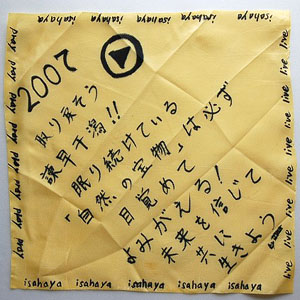 isahaya isahaya isahaya isahaya
2007
取り戻そう
諫早干潟!!
眠り続けている
「自然の宝物」は必ず
目覚めて
よみがえる!
未来を信じて
共に
生きよう
pray pray pray pray pray pray pray
live live live live live live live
isahaya isahaya isahaya isahaya